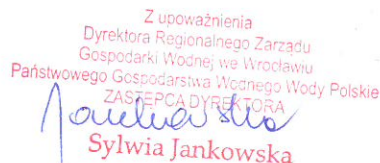 Z upoważnienia
Dyrektora Regionalnego Zarządu
Gospodarki Wodnej we Wrocławiu
Państwowego Gospodarstwa Wodnego Wody Polskie
ZASTĘPCA DYREKTORA
Sylwia Jankowska